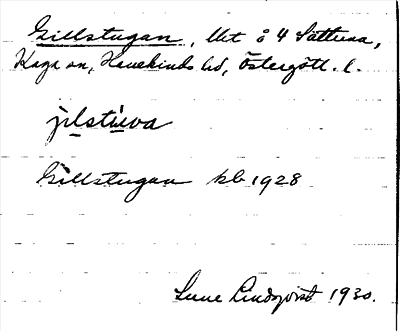 Gillstugan, lht å 4 Sättuna,
Kaga sn, Hanekinds hd, Östergötl. l.
jılstúva
Gillstugan kb 1928
Sune Lindqvist 1930.